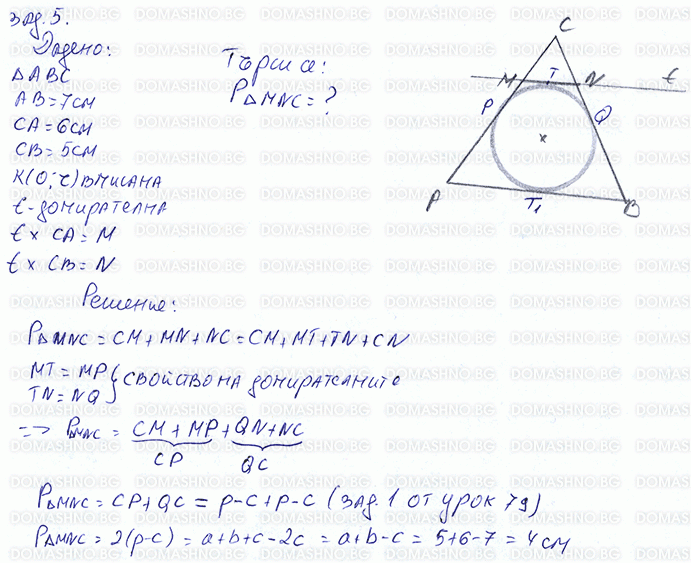 зад. 5.
Дадено:
Δ ABC
AB = 7 см
CA = 6 см
CB = 5 см
K(O; r) вписана
t - допирателна
t × CA = M
t × CB = N
Търси се:
P△MNC = ?
C
M T N t
P Q
×
A T₁ B
Решение:
P△MNC = CM + MN + NC = CM + MT + TN + CN
MT = MP
TN = NQ } свойство на допирателните
=> P△MNC = CM + MP + QN + NC
CP QC
P△MNC = CP + QC = p-c + p-c (зад. 1 от урок 79)
P△MNC = 2(p-c) = a+b+c-2c = a+b-c = 5+6-7 = 4 см
DOMASHNO.BG